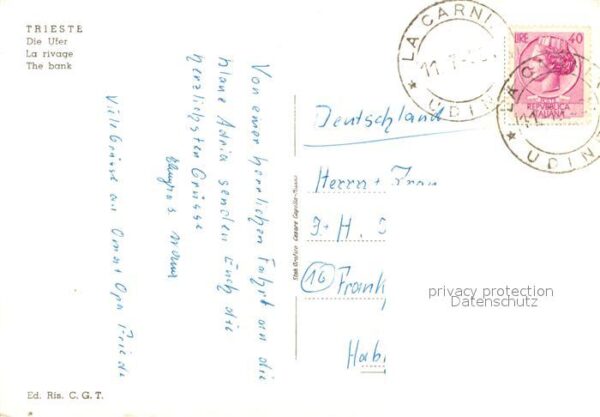 TRIESTE
Die Ufer
La rivage
The bank
Von einer herrlichen Fahrt an die
blaue Adria senden Euch die
herzlichsten Grüsse
Viele Grüsse an Oma + Opa
Ed. Ris. C. G. T.
LA CARNI
11.
UDIN
LIRE 40
REPVBBLICA
ITALIANA
LA C
11.
UDIN
Deutschland
Herrn + Frau
H.
16 Frank
Hab
privacy protection
Datenschutz